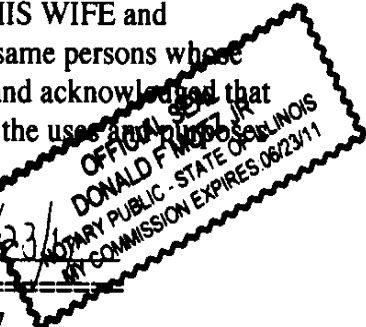 HIS WIFE and
same persons whose
and acknowledged that
the uses and purposes
OFFICIAL SEAL
DONALD F JR
NOTARY PUBLIC - STATE OF ILLINOIS
MY COMMISSION EXPIRES:06/23/11
23/